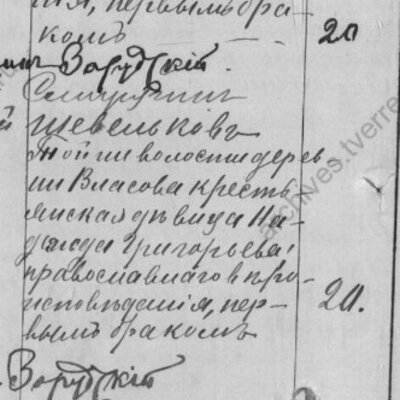 нія, первымъ бра-
комъ 20
Зарудскій
Шевельковъ
Той ти волости дерев-
ни Власова кресть-
янская дѣвица На-
дежда Григорьева,
православнаго вѣро-
исповѣданія, пер-
вымъ бракомъ 20.
Зарудскій
archives.tverreg